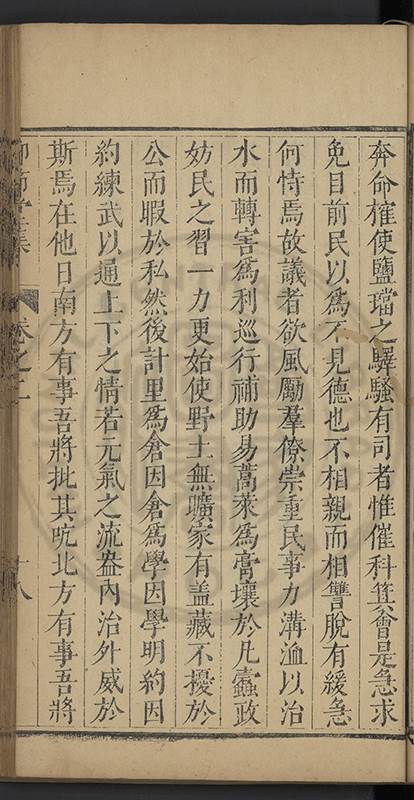 奔命榷使鹽璫之驛騷有司者惟催科箕會是急求
免目前民以爲不見德也不相親而相讐脫有緩急
何恃焉故議者欲風勵羣僚崇重民事力溝洫以治
水而轉害爲利巡行補助易蒿萊爲膏壤於凡蠹政
妨民之習一力更始使野土無曠家有盖藏不擾於
公而暇於私然後計里爲倉因倉爲學因學明約因
約練武以通上下之情若元氣之流盎內治外威於
斯焉在他日南方有事吾將扯其吭北方有事吾將
卷之二
十八